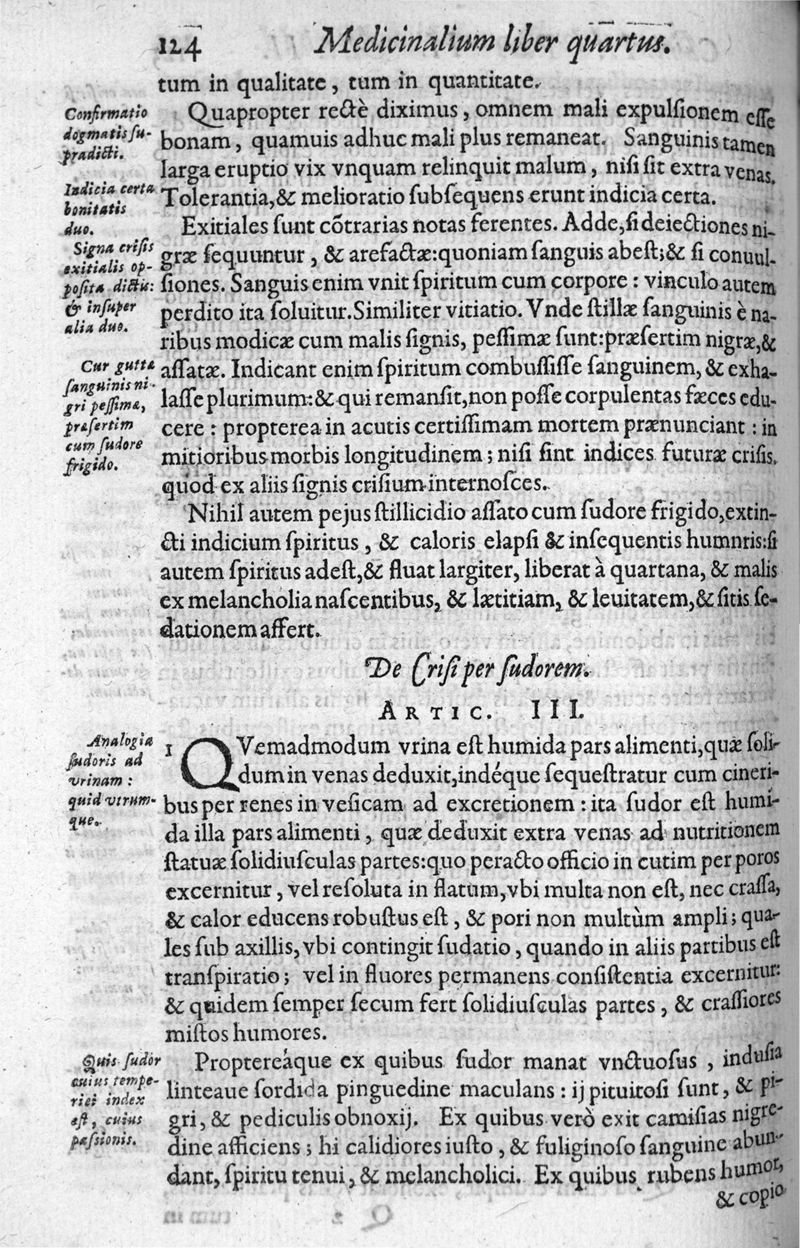 124 Medicinalium liber quartus.
tum in qualitate, tum in quantitate.
Confirmatio
dogmatis ſu-
pradicti.
Quapropter rectè diximus, omnem mali expulſionem eſſe
bonam, quamuis adhuc mali plus remaneat. Sanguinis tamen
larga eruptio vix vnquam relinquit malum, niſi ſit extra venas.
Indicia certa
bonitatis
duo.
Tolerantia, & melioratio ſubſequens erunt indicia certa.
Signa criſis
exitialis op-
poſita dictis:
& inſuper
alia duo.
Exitiales ſunt cõtrarias notas ferentes. Adde, ſi deiectiones ni-
græ ſequuntur, & arefactæ: quoniam ſanguis abeſt; & ſi conuul-
ſiones. Sanguis enim vnit ſpiritum cum corpore: vinculo autem
perdito ita ſoluitur. Similiter vitiatio. Vnde ſtillæ ſanguinis è na-
ribus modicæ cum malis ſignis, peſſimæ ſunt: præſertim nigræ, &
Cur guttæ
ſanguinis ni-
gri peſſimæ,
præſertim
cum ſudore
frigido.
aſſatæ. Indicant enim ſpiritum combuſſiſſe ſanguinem, & exha-
laſſe plurimum: & qui remanſit, non poſſe corpulentas fæces edu-
cere: propterea in acutis certiſſimam mortem prænunciant: in
mitioribus morbis longitudinem; niſi ſint indices futuræ criſis,
quod ex aliis ſignis criſium internoſces.
Nihil autem pejus ſtillicidio aſſato cum ſudore frigido, extin-
cti indicium ſpiritus, & caloris elapſi & inſequentis humnris: ſi
autem ſpiritus adeſt, & fluat largiter, liberat à quartana, & malis
ex melancholia naſcentibus, & lætitiam, & leuitatem, & ſitis ſe-
dationem affert.
De Criſi per ſudorem.
ARTIC. III.
Analogia
ſudoris ad
vrinam:
quid vtrum-
que.
1 QVemadmodum vrina eſt humida pars alimenti, quæ ſoli-
dum in venas deduxit, indéque ſequeſtratur cum cineri-
bus per renes in veſicam ad excretionem: ita ſudor eſt humi-
da illa pars alimenti, quæ deduxit extra venas ad nutritionem
ſtatuæ ſolidiuſculas partes: quo peracto officio in cutim per poros
excernitur, vel reſoluta in flatum, vbi multa non eſt, nec craſſa,
& calor educens robuſtus eſt, & pori non multùm ampli; qua-
les ſub axillis, vbi contingit ſudatio, quando in aliis partibus eſt
tranſpiratio; vel in fluores permanens conſiſtentia excernitur:
& quidem ſemper ſecum fert ſolidiuſculas partes, & craſſiores
miſtos humores.
Quis ſudor
cuius tempe-
riei index
eſt, cuius
paſsionis.
Proptereáque ex quibus ſudor manat vnctuoſus, induſia
linteaue ſordida pinguedine maculans: ij pituitoſi ſunt, & pi-
gri, & pediculis obnoxij. Ex quibus verò exit camiſias nigre-
dine afficiens; hi calidiores iuſto, & fuliginoſo ſanguine abun-
dant, ſpiritu tenui, & melancholici. Ex quibus rubens humor,
& copio